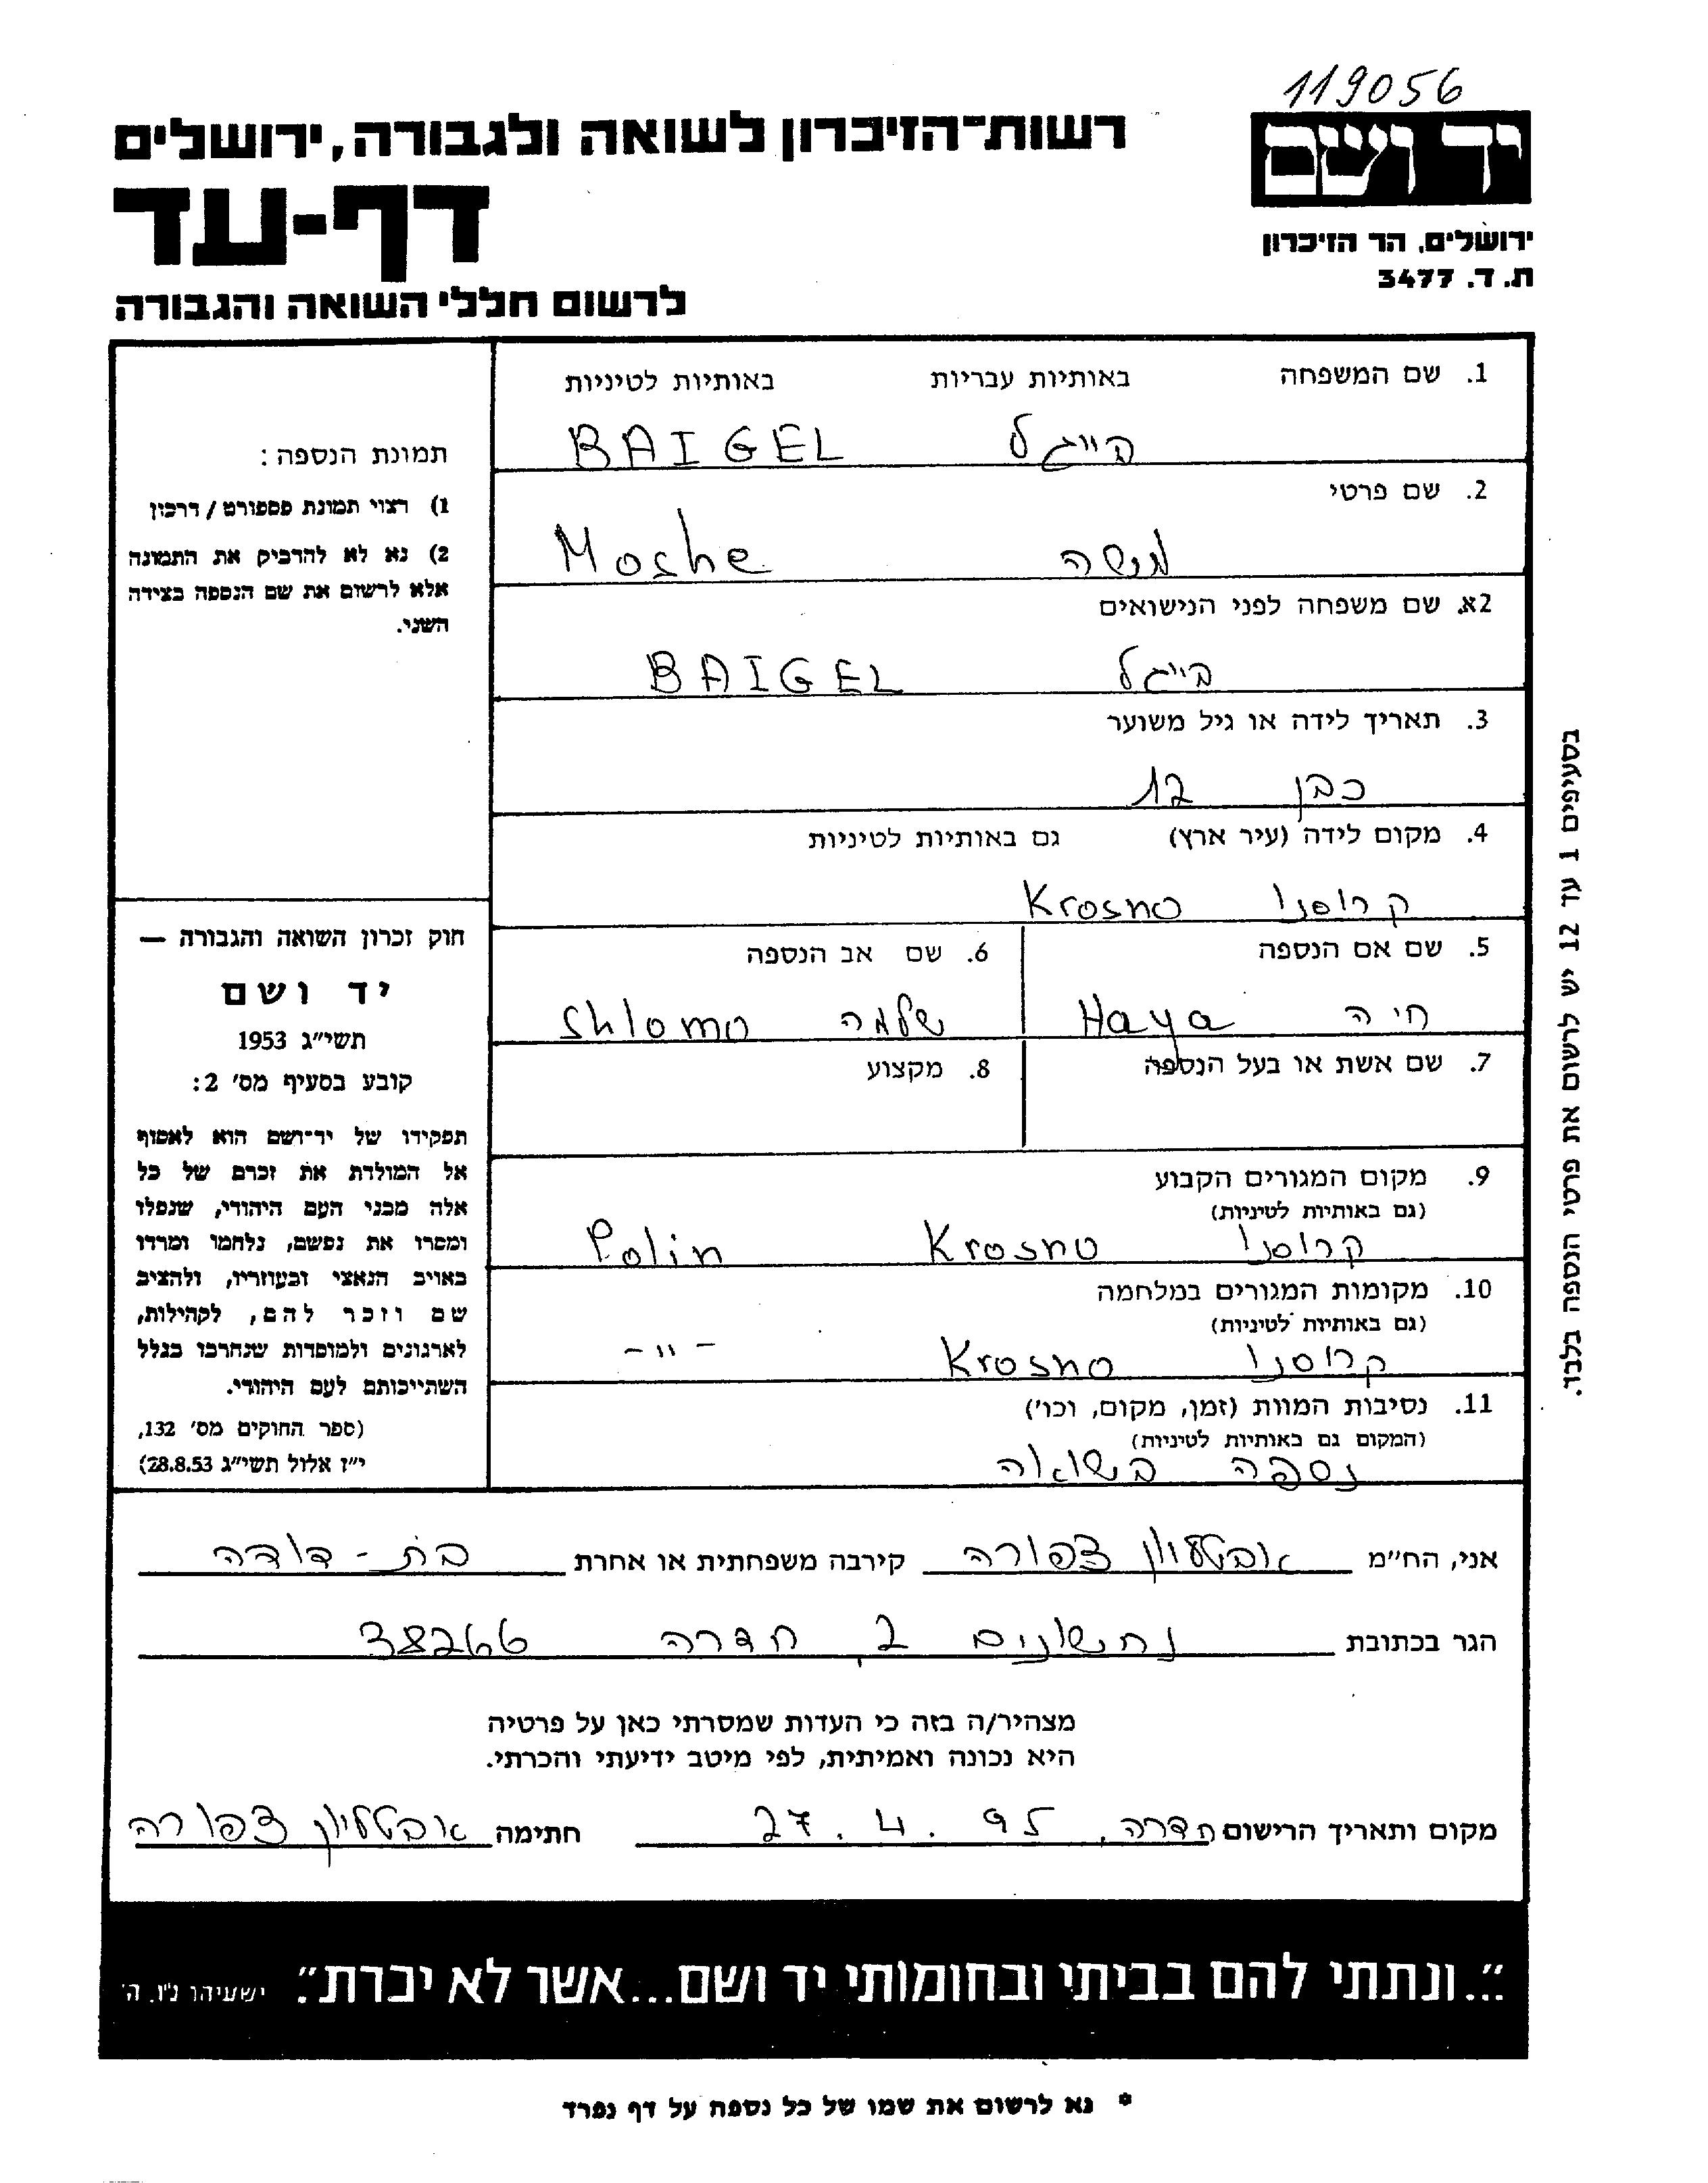 119056
יד ושם
ירושלים, הר הזיכרון
ת. ד. 3477
רשות־הזיכרון לשואה ולגבורה, ירושלים
דף-עד
לרשום חללי השואה והגבורה
1. שם המשפחה באותיות עבריות באותיות לטיניות
בייגל BAIGEL
2. שם פרטי
משה Moshe
2א. שם משפחה לפני הנישואים
בייגל BAIGEL
3. תאריך לידה או גיל משוער
כבן 12
4. מקום לידה (עיר ארץ) גם באותיות לטיניות
קרוסנו Krosno
5. שם אם הנספה
חיה Haya
6. שם אב הנספה
שלמה Shlomo
7. שם אשת או בעל הנספה
8. מקצוע
9. מקום המגורים הקבוע
(גם באותיות לטיניות)
קרוסנו Krosno Polin
10. מקומות המגורים במלחמה
(גם באותיות לטיניות)
קרוסנו Krosno -"-
11. נסיבות המוות (זמן, מקום, וכו')
(המקום גם באותיות לטיניות)
נספה בשואה
תמונת הנספה:
1) רצוי תמונת פספורט / דרכון
2) נא לא להדביק את התמונה
אלא לרשום את שם הנספה בצידה
השני.
חוק זכרון השואה והגבורה —
יד ושם
תשי"ג 1953
קובע בסעיף מס' 2:
תפקידו של יד־ושם הוא לאסוף
אל המולדת את זכרם של כל
אלה מבני העם היהודי, שנפלו
ומסרו את נפשם, נלחמו ומרדו
באויב הנאצי ובעוזריו, ולהציב
שם וזכר להם, לקהילות,
לארגונים ולמוסדות שנחרבו בגלל
השתייכותם לעם היהודי.
(ספר החוקים מס' 132,
י"ז אלול תשי"ג 28.8.53)
בסעיפים 1 עד 12 יש לרשום את פרטי הנספה בלבד.
אני, הח"מ אבטליון צפורה קירבה משפחתית או אחרת בת-דודה
הגר בכתובת נחשונים 2, חדרה 38266
מצהיר/ה בזה כי העדות שמסרתי כאן על פרטיה
היא נכונה ואמיתית, לפי מיטב ידיעתי והכרתי.
מקום ותאריך הרישום חדרה, 27.4.95 חתימה אבטליון צפורה
"...ונתתי להם בביתי ובחומותי יד ושם...אשר לא יכרת". ישעיהו נ"ו, ה'
* נא לרשום את שמו של כל נספה על דף נפרד